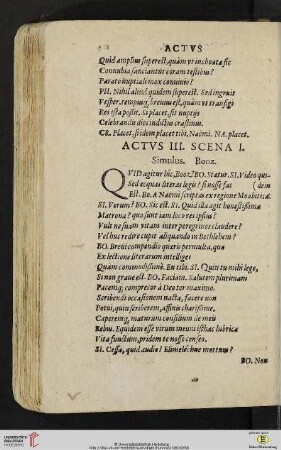 ACTVS
Quid amplius superest, quàm vt inchoata sic
Connubia sanciantur coram testibus?
Parato nuptiali mox conuiuio?
PH. Nihil aliud quidem superest. Sed ingruit
Vesper. tempusq́; breuius est, quàm vt transigi
Res ista possit. Si placet, sit nuptijs
Celebrandis dies indictus crastinus.
CR. Placet, si idem placet tibi, Naimi. NA. placet.
ACTVS III. SCENA I.
Simulus. Booz.
QVID agitur hic, Booz? BO. Statur. SI. Video qui-
Sed ecquas literas legis? si nosse fas (dem
Est. BO. A Naemi scriptas ex regione Moabitica.
SI. Verum? BO. Sic est. SI. Quid illa agit honestissima
Matrona? quo sunt iam loco res ipsius?
Vult ne suam vitam inter peregrinos claudere?
Vel huc redire cupit aliquando in Bethlehem?
BO. Breui compendio queris permulta, quæ
Ex lectione literarum intelliges
Quàm commodissimè. En tibi. SI. Quin tu mihi lege,
Si non graue est. BO. Faciam. Salutem plurimam
Pacemq́; comprecor à Deo ter maximo.
Scribendi occasionem nacta, facere non
Potui, quin scriberem, affinis charissime,
Caperemq́; maturum consilium de meis
Rebus. Equidem esse virum meum isthac lubrica
Vita functum, pridem te nosse censeo.
SI. Cessa, quid audio? Elimelechne mortuus?
BO. Non
© Universitätsbibliothek Heidelberg